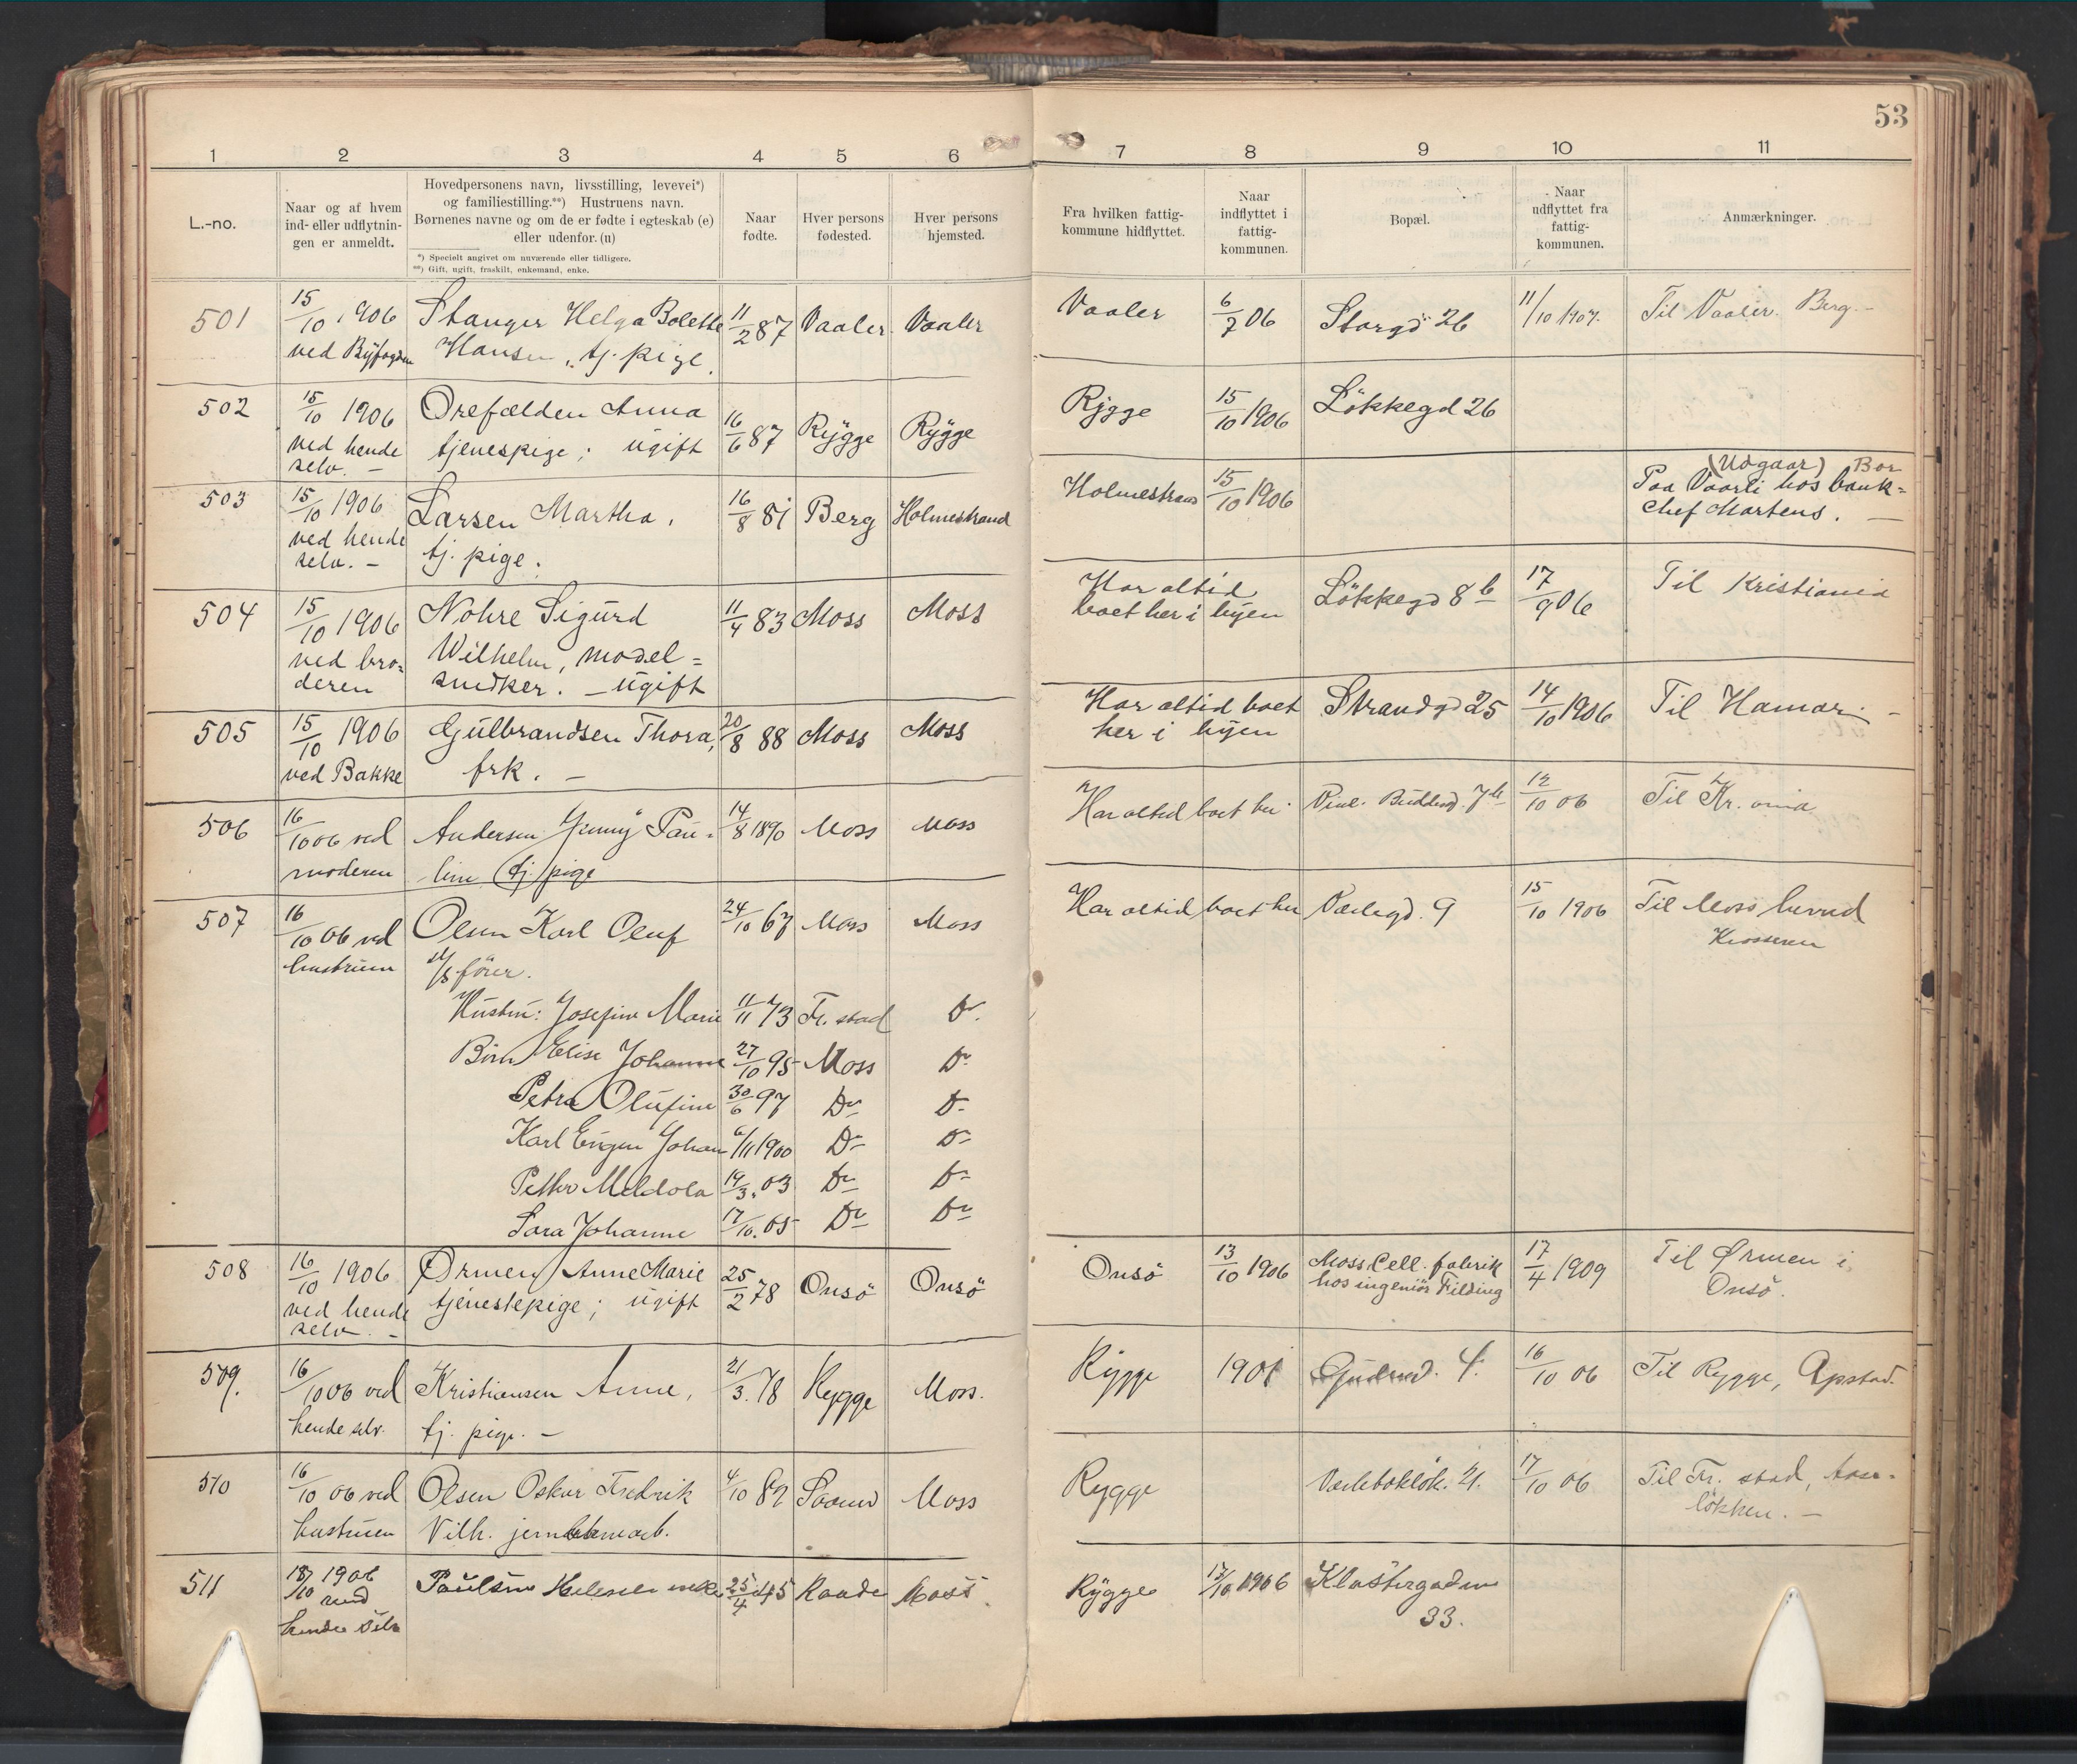 53
1 2 3 4 5 6 7 8 9 10 11
L.-no.
Naar og af hvem
ind- eller udflytnin-
gen er anmeldt.
Hovedpersonens navn, livsstilling, levevei*)
og familiestilling.**) Hustruens navn.
Børnenes navne og om de er fødte i egteskab (e)
eller udenfor. (u)
*) Specielt angivet om nuværende eller tidligere.
**) Gift, ugift, fraskilt, enkemand, enke.
Naar
fødte.
Hver persons
fødested.
Hver persons
hjemsted.
Fra hvilken fattig-
kommune hidflyttet.
Naar
indflyttet i
fattig-
kommunen.
Bopæl.
Naar
udflyttet fra
fattig-
kommunen.
Anmærkninger.
501 15/10 1906 Stanger Helga Bolette 11/2 87 Vaaler Vaaler Vaaler 6/7 06 Storgd 26 11/10 1907. Til Vaaler. Berg. -
ved Byfogden Hansen, tj. pige.
502 15/10 1906 Orefælden Anna 16/6 87 Rygge Rygge Rygge 15/10 1906 Lökkegd 26
ved hende tjenespige; ugift
selv. -
503 15/10 1906 Larsen Martha, 16/8 81 Berg Holmestrand Holmestrand 15/10 1906 (Udgaar) Bor
ved hende tj. pige. Paa Vaarli hos bank=
selv. - chef Martens. -
504 15/10 1906 Nohre Sigurd 11/4 83 Moss Moss Har altid Lökkegd 8 b 17/9 06 Til Kristiania
ved bro= Wilhelm, model= boet her i byen
deren snedker. - ugift
505 15/10 1906 Gulbrandsen Thora, 20/8 88 Moss Moss Har altid boet Strandgd 25 14/10 1906 Til Hamar. -
ved Bakke frk. - her i byen
506 16/10 06 ved Andersen Jenny Pau- 14/8 1890 Moss Moss Har altid boet her 7 b 12/10 06 Til Kr.ania
moderen line tj. pige
507 16/10 06 ved Olsen Karl Oluf 24/10 67 Moss Moss Har altid boet her Værlegd. 9 15/10 1906 Til Moss herred
hustruen fører. Krosseren
Hustru: Josefine Marie 11/11 73 Fr. stad Do.
Børn Elise Johanne 27/10 95 Moss Do
Petra Olufine 30/6 97 Do Do
Karl Eugen Johan 6/11 1900 Do Do
Petter 19/3. 03 Do Do
Sara Johanne 17/10. 05 Do Do
508 16/10 1906 Ørmen, Anne Marie 25/2 78 Onsö Onsö Onsö 13/10 1906 Moss Cell. fabrik 17/4 1909 Til Ørmen i
ved hende tjenestepige; ugift hos ingeniör Filding Onsö.
selv. -
509. 16/10 06 ved Kristiansen Anne, 21/3. 78 Rygge Moss. Rygge 1901 4. 16/10 06 Til Rygge, Apstad.
hende selv. tj. pige. -
510 16/10 06 ved Olsen Oskar Fredrik 4/10 82 Moss Rygge 21. 17/10 06 Til Fr. stad,
hustruen Vilh. lökken. -
511 18/10 1906 Paulsen enke 25/4 45 Raade Moss. Rygge 17/10 1906 Klostergaden
ved 33.
hende selv